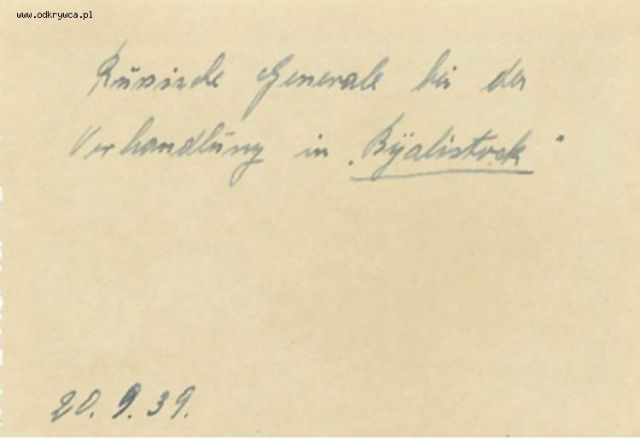 www.odkrywca.pl
Russische Generale bei der
Verhandlung in „Byalistock"
20.9.39.